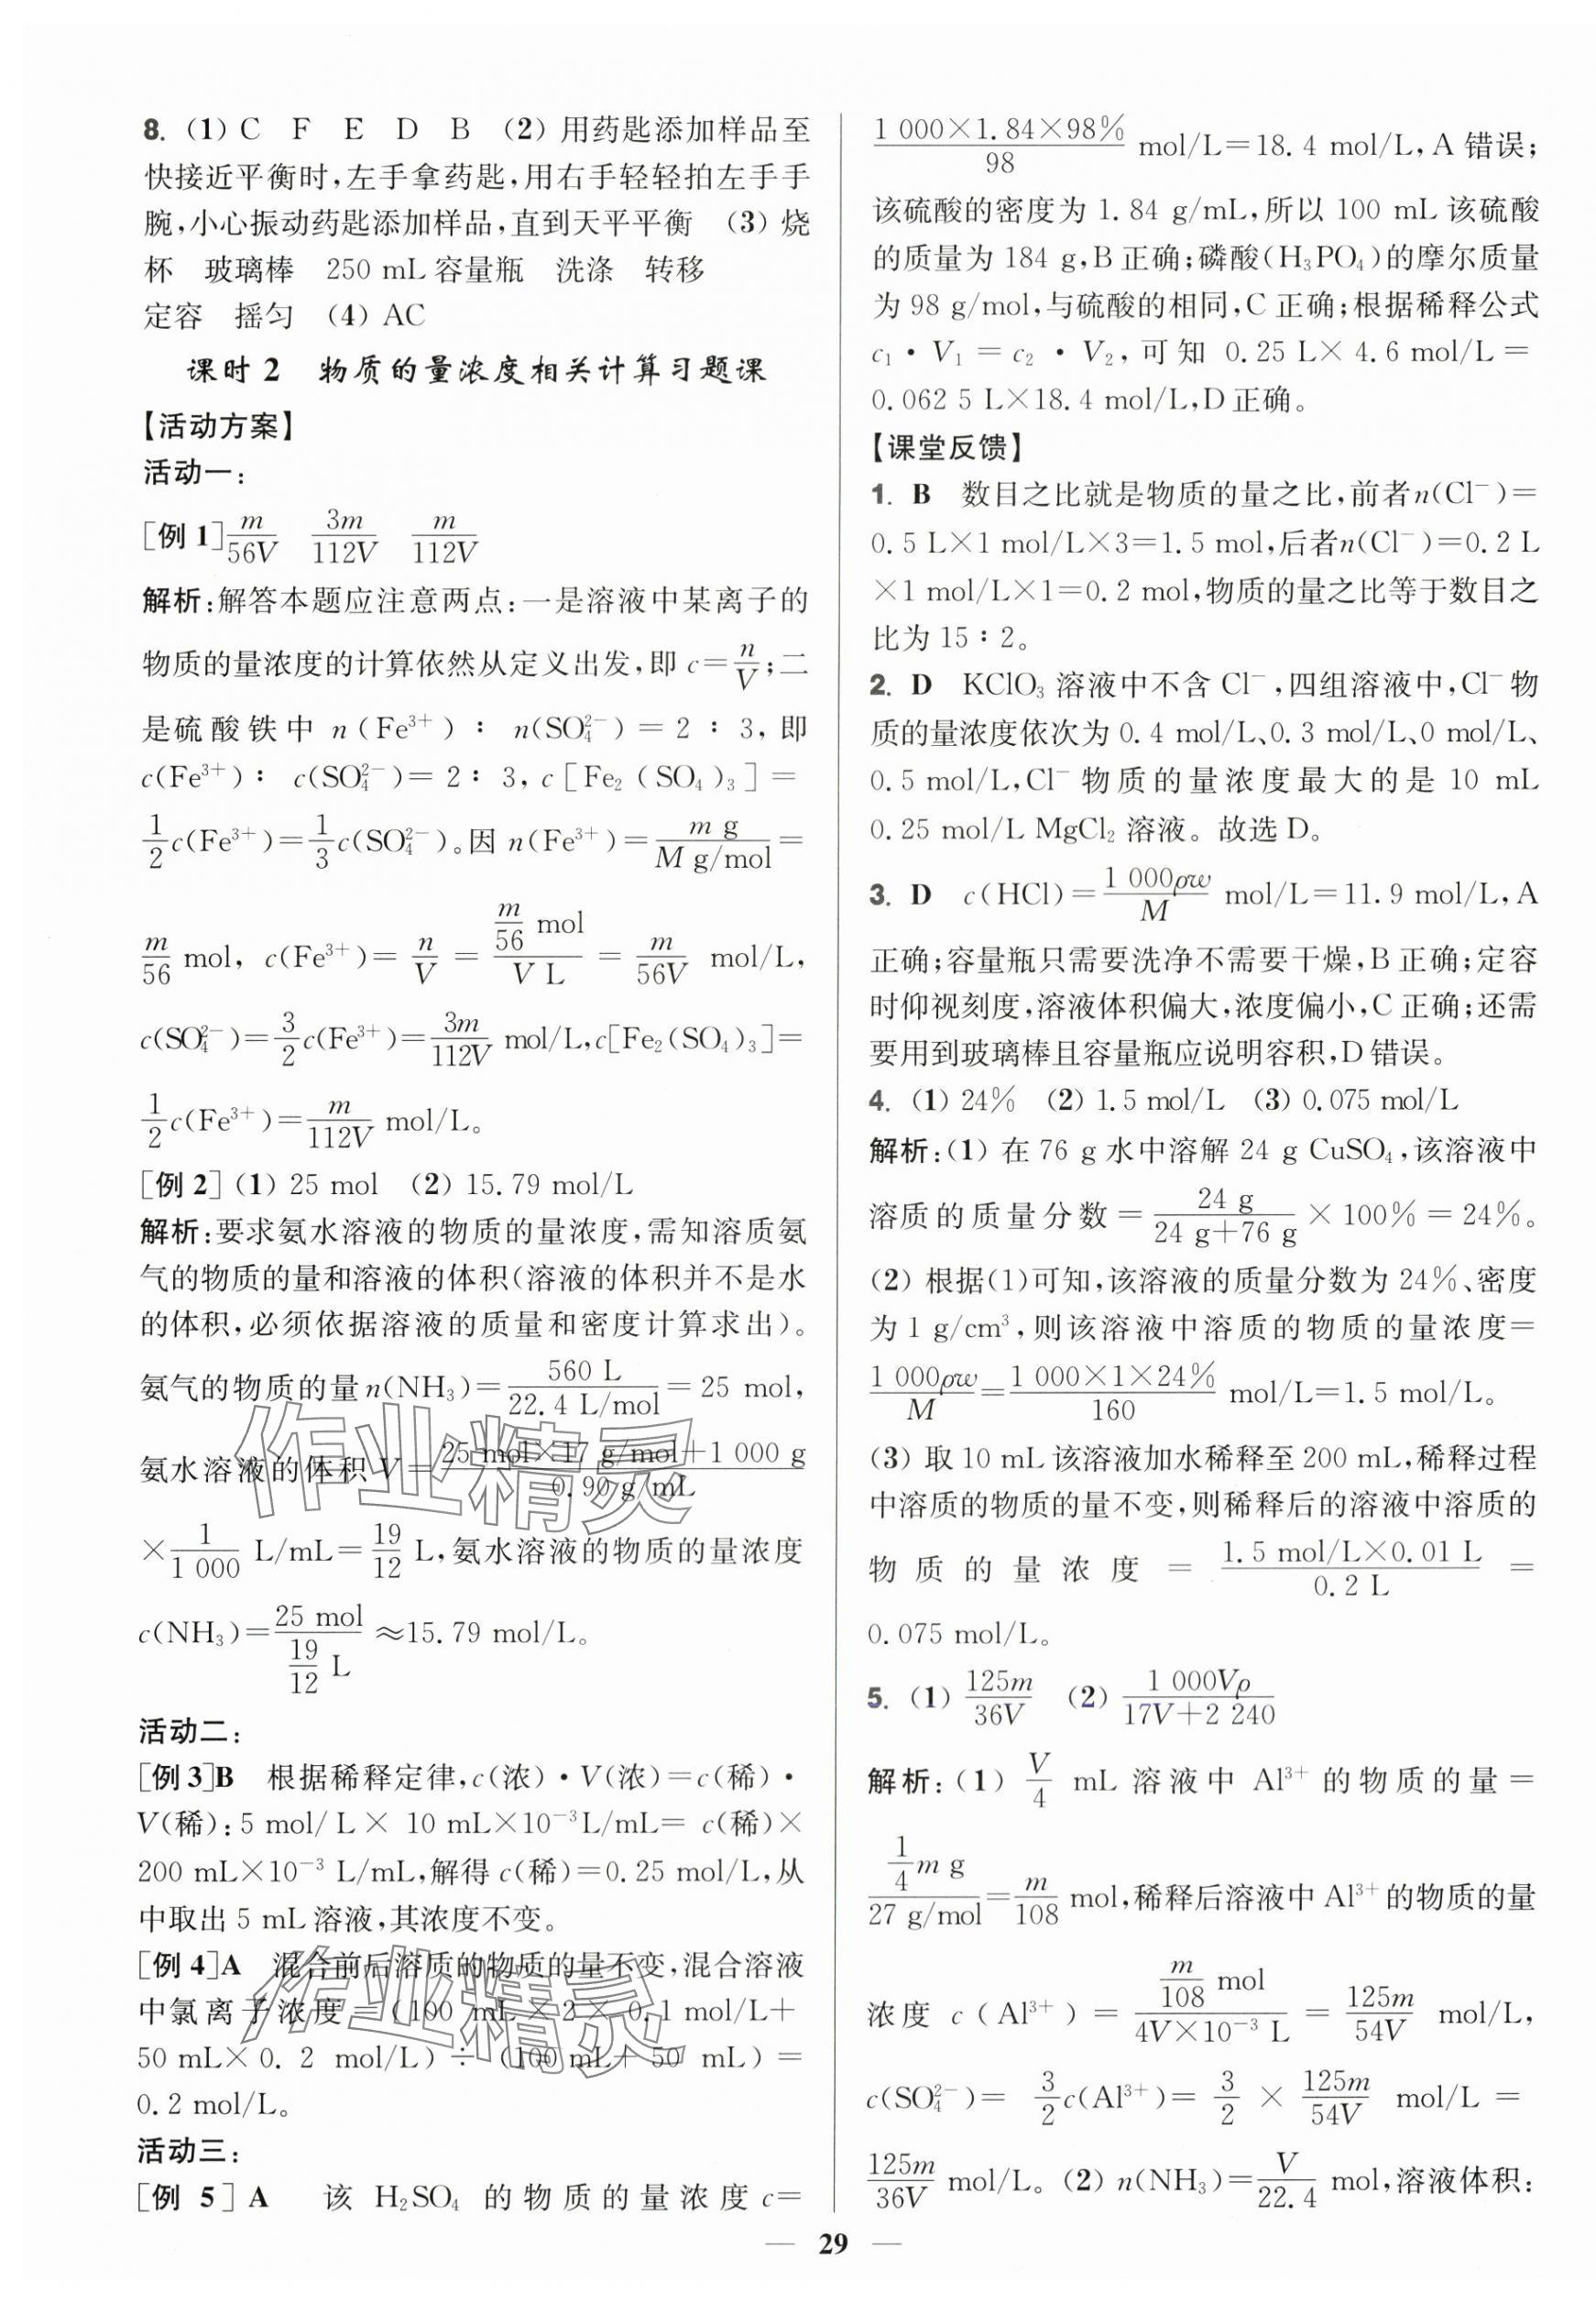 8. (1) C　F　E　D　B　(2) 用药匙添加样品至
快接近平衡时,左手拿药匙,用右手轻轻拍左手手
腕,小心振动药匙添加样品,直到天平平衡　(3) 烧
杯　玻璃棒　250 mL 容量瓶　洗涤　转移
定容　摇匀　(4) AC
课时 2　物质的量浓度相关计算习题课
【活动方案】
活动一:
[例 1] m/56V　3m/112V　m/112V
解析:解答本题应注意两点:一是溶液中某离子的
物质的量浓度的计算依然从定义出发,即 c=n/V;二
是硫酸铁中 n(Fe³⁺)∶n(SO₄²⁻)=2∶3,即
c(Fe³⁺)∶c(SO₄²⁻)=2∶3,c[Fe₂(SO₄)₃]=
1/2 c(Fe³⁺)=1/3 c(SO₄²⁻)。因 n(Fe³⁺)=m g/M g/mol=
m/56 mol,c(Fe³⁺)=n/V=(m/56 mol)/(V L)=m/56V mol/L,
c(SO₄²⁻)=3/2 c(Fe³⁺)=3m/112V mol/L,c[Fe₂(SO₄)₃]=
1/2 c(Fe³⁺)=m/112V mol/L。
[例 2] (1) 25 mol　(2) 15.79 mol/L
解析:要求氨水溶液的物质的量浓度,需知溶质氨
气的物质的量和溶液的体积(溶液的体积并不是水
的体积,必须依据溶液的质量和密度计算求出)。
氨气的物质的量 n(NH₃)=560 L/22.4 L/mol=25 mol,
氨水溶液的体积 V=(25 mol×17 g/mol+1 000 g)/0.90 g/mL
×1/1 000 L/mL=19/12 L,氨水溶液的物质的量浓度
c(NH₃)=25 mol/(19/12 L)≈15.79 mol/L。
活动二:
[例 3]B　根据稀释定律,c(浓)·V(浓)=c(稀)·
V(稀):5 mol/L×10 mL×10⁻³L/mL=c(稀)×
200 mL×10⁻³ L/mL,解得 c(稀)=0.25 mol/L,从
中取出 5 mL 溶液,其浓度不变。
[例 4]A　混合前后溶质的物质的量不变,混合溶液
中氯离子浓度=(100 mL×2×0.1 mol/L+
50 mL×0.2 mol/L)÷(100 mL+50 mL)=
0.2 mol/L。
活动三:
[例 5]A　该 H₂SO₄ 的物质的量浓度 c=
1 000×1.84×98%/98 mol/L=18.4 mol/L,A 错误;
该硫酸的密度为 1.84 g/mL,所以 100 mL 该硫酸
的质量为 184 g,B 正确;磷酸(H₃PO₄)的摩尔质量
为 98 g/mol,与硫酸的相同,C 正确;根据稀释公式
c₁·V₁=c₂·V₂,可知 0.25 L×4.6 mol/L=
0.062 5 L×18.4 mol/L,D 正确。
【课堂反馈】
1. B　数目之比就是物质的量之比,前者 n(Cl⁻)=
0.5 L×1 mol/L×3=1.5 mol,后者 n(Cl⁻)=0.2 L
×1 mol/L×1=0.2 mol,物质的量之比等于数目之
比为 15∶2。
2. D　KClO₃ 溶液中不含 Cl⁻,四组溶液中,Cl⁻物
质的量浓度依次为 0.4 mol/L、0.3 mol/L、0 mol/L、
0.5 mol/L,Cl⁻物质的量浓度最大的是 10 mL
0.25 mol/L MgCl₂ 溶液。故选 D。
3. D　c(HCl)=1 000ρw/M mol/L=11.9 mol/L,A
正确;容量瓶只需要洗净不需要干燥,B 正确;定容
时仰视刻度,溶液体积偏大,浓度偏小,C 正确;还需
要用到玻璃棒且容量瓶应说明容积,D 错误。
4. (1) 24%　(2) 1.5 mol/L　(3) 0.075 mol/L
解析:(1) 在 76 g 水中溶解 24 g CuSO₄,该溶液中
溶质的质量分数=24 g/(24 g+76 g)×100%=24%。
(2) 根据(1)可知,该溶液的质量分数为 24%、密度
为 1 g/cm³,则该溶液中溶质的物质的量浓度=
1 000ρw/M=1 000×1×24%/160 mol/L=1.5 mol/L。
(3) 取 10 mL 该溶液加水稀释至 200 mL,稀释过程
中溶质的物质的量不变,则稀释后的溶液中溶质的
物质的量浓度=1.5 mol/L×0.01 L/0.2 L=
0.075 mol/L。
5. (1) 125m/36V　(2) 1 000Vρ/(17V+2 240)
解析:(1) V/4 mL 溶液中 Al³⁺的物质的量=
(1/4 m g)/(27 g/mol)=m/108 mol,稀释后溶液中 Al³⁺的物质的量
浓度 c(Al³⁺)=(m/108 mol)/(4V×10⁻³ L)=125m/54V mol/L,
c(SO₄²⁻)=3/2 c(Al³⁺)=3/2×125m/54V mol/L=
125m/36V mol/L。(2) n(NH₃)=V/22.4 mol,溶液体积:
— 29 —
作业精灵
作业精灵